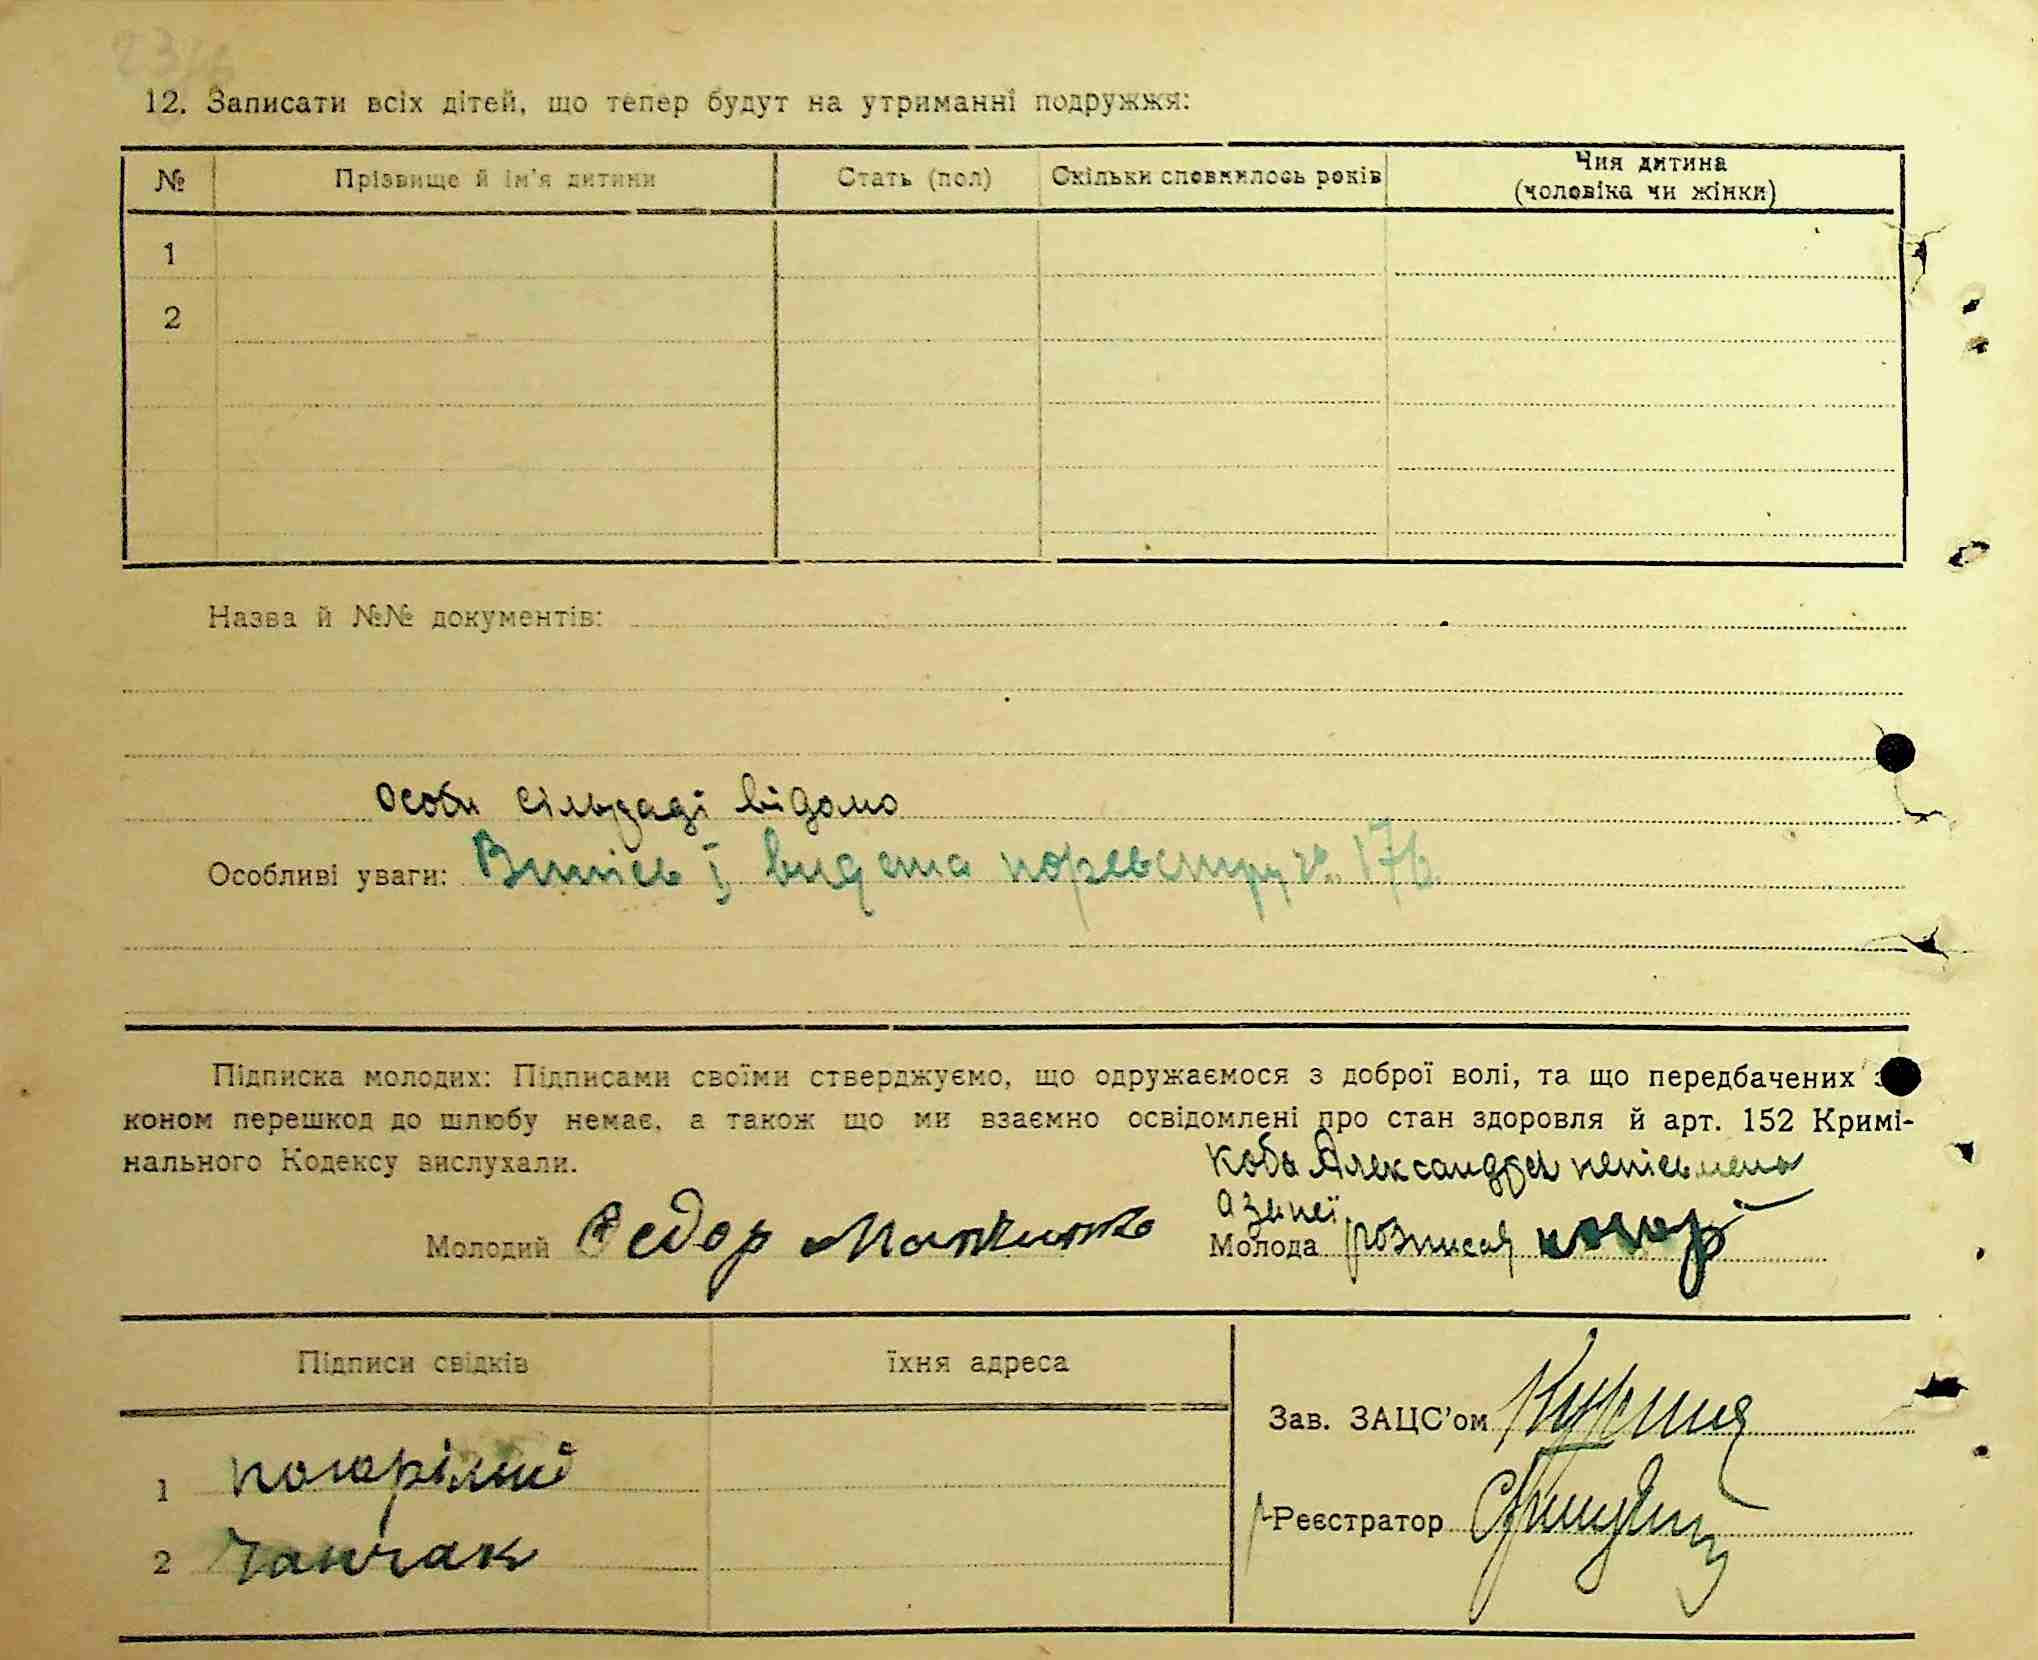 12. Записати всіх дітей, що тепер будут на утриманні подружжя:
№ Прізвище й ім'я дитини Стать (пол) Скільки сповнилось років Чия дитина
(чоловіка чи жінки)
1
2
Назва й №№ документів:
особи сільраді відомо
Особливі уваги: Випись і видена 176
Підписка молодих: Підписами своїми стверджуємо, що одружаємося з доброї волі, та що передбачених з
коном перешкод до шлюбу немає, а також що ми взаємно освідомлені про стан здоровля й арт. 152 Кримі-
нального Кодексу вислухали.
Александра неписьмена
а занеї
Молодий Федор Молода розписая
Підписи свідків їхня адреса
Зав. ЗАЦС'ом
1 погорілий
Реєстратор
2